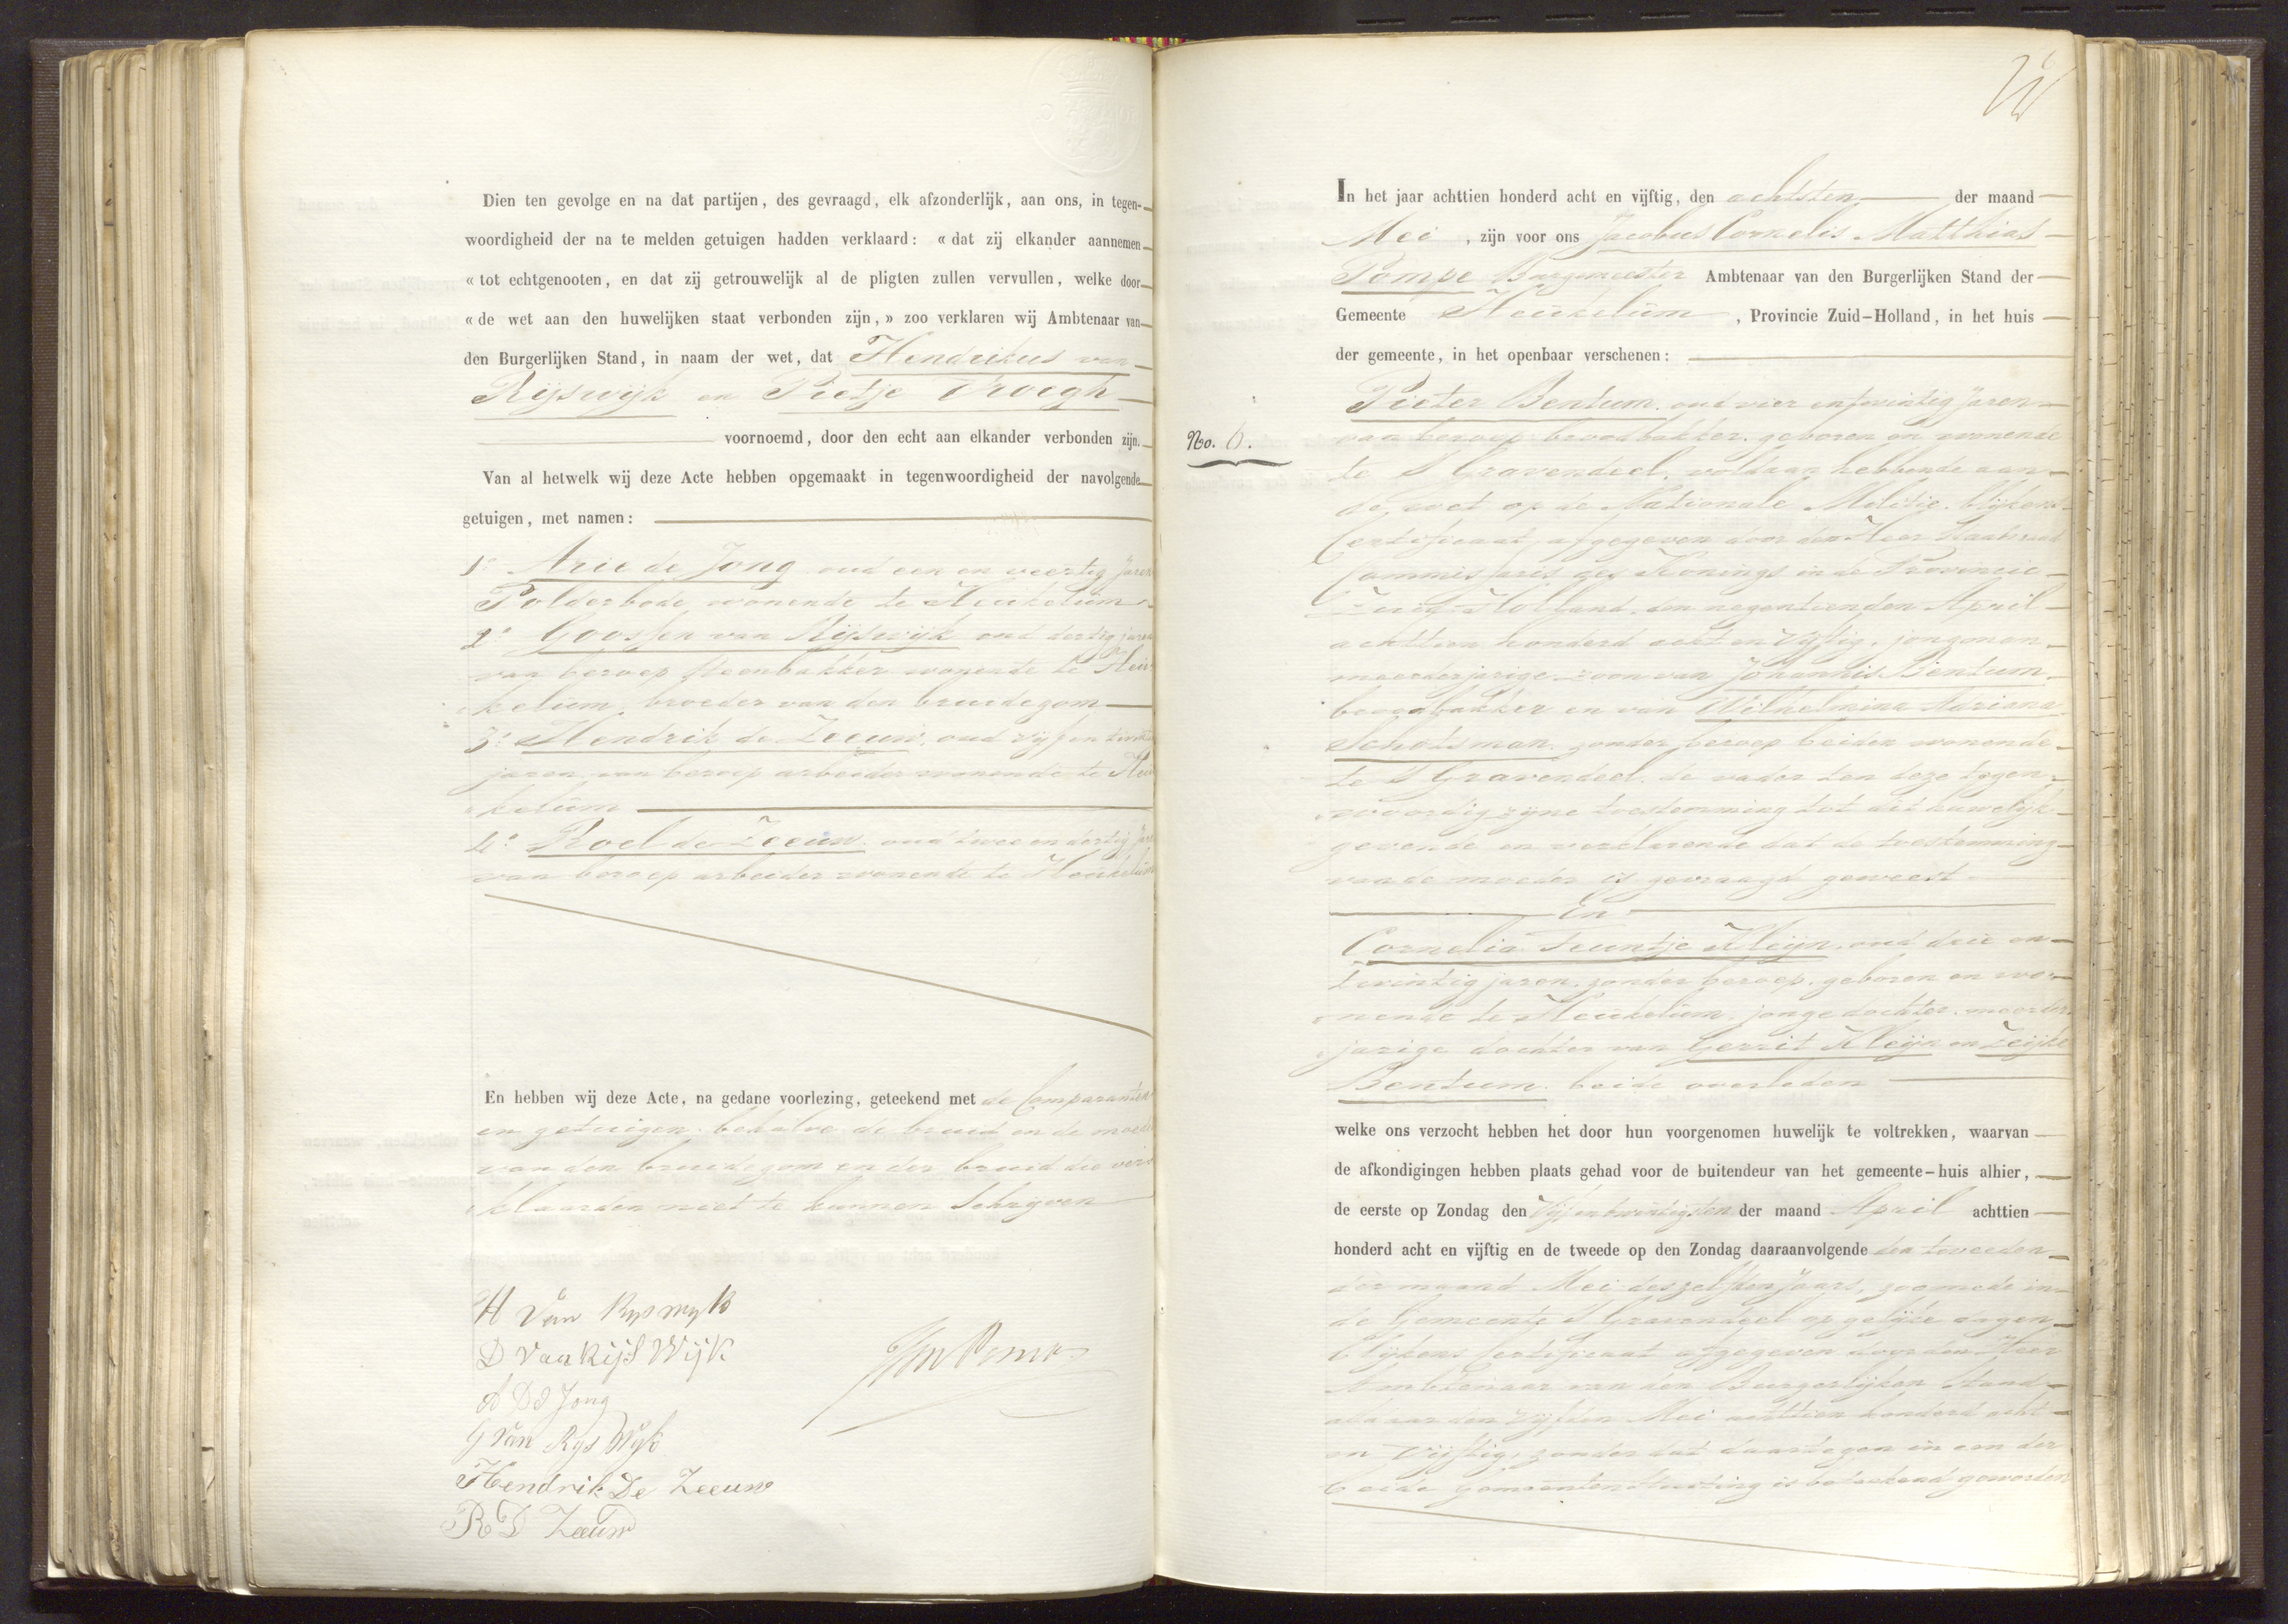 Dien ten gevolge en na dat partijen, des gevraagd, elk afzonderlijk, aan ons, in tegen-
woordigheid der na te melden getuigen hadden verklaard: « dat zij elkander aannemen
« tot echtgenooten, en dat zij getrouwelijk al de pligten zullen vervullen, welke door
« de wet aan den huwelijken staat verbonden zijn, » zoo verklaren wij Ambtenaar van
den Burgerlijken Stand, in naam der wet, dat Hendrikus van
Rijswijk en Pietje
voornoemd, door den echt aan elkander verbonden zijn.
Van al hetwelk wij deze Acte hebben opgemaakt in tegenwoordigheid der navolgende
getuigen, met namen:
1° Arie de Jong oud een en veertig jaren
Polderbode, wonende te Heukelum
2° Goossen van Rijswijk oud dertig jaren
van beroep steenbakker wonende te Heu
kelum, broeder van den bruidegom
3° Hendrik de Zeeuw, oud vijf en twint
jaren, van beroep arbeider wonende te Heu
kelum
4° Roel de Zeeuw oud twee en dertig jar
van beroep arbeider wonende te Heukelum
En hebben wij deze Acte, na gedane voorlezing, geteekend met de Comparanten
en getuigen behalve de bruid en de moeder
van den bruidegom en der bruid die ver
klaarden niet te kunnen Schrijven
H Van Ryswyk
D Van Rijs Wijk
A D Jong
G Van Rys Wyk
Hendrik De Zeeuw
R D Zeeuw
In het jaar achttien honderd acht en vijftig, den achtsten der maand
Mei, zijn voor ons Jacobus Cornelis Matthias
Pompe Burgemeester Ambtenaar van den Burgerlijken Stand der
Gemeente Heukelum, Provincie Zuid-Holland, in het huis
der gemeente, in het openbaar verschenen:
Pieter Bentum, oud vier en twintig jaren
No. 6.
van beroep broodbakker, geboren en wonende
te S Gravendeel, voldaan hebbende aan
de wet op de Nationale Militie, blijkens
Certificaat, afgegeven door den Heer Staatsraad
Commissaris des Konings in de Provincie
Zuid Holland, den negentienden April
achttien honderd acht en vijftig, jongman,
meerderjarige zoon van Johannis Bentum,
broodbakker en van Wilhelmina Adriana
Schotsman, zonder beroep beiden wonende
te S Gravendeel, de vader ten deze tegen
woordig zijne toestemming tot dit huwelijk
gevende en verklarende dat de toestemming
van de moeder is gevraagd geweest
En
Cornelia Teuntje Kleijn, oud drie en
twintig jaren, zonder beroep, geboren en wo
nende te Heukelum, jonge dochter, meerder
jarige dochter van Gerrit Kleijn en Zeijke
Bentum, beide overleden
welke ons verzocht hebben het door hun voorgenomen huwelijk te voltrekken, waarvan
de afkondigingen hebben plaats gehad voor de buitendeur van het gemeente-huis alhier,
de eerste op Zondag den Vijf en twintigsten der maand April achttien
honderd acht en vijftig en de tweede op den Zondag daaraanvolgende den tweeden
der maand Mei deszelfden jaars, zoomede in
de Gemeente S Gravendeel op gelijke dagen
blijkens Certificaat afgegeven door den Heer
Ambtenaar van den Burgerlijken Stand
aldaar den vijfden Mei achttien honderd acht
en vijftig, zonder dat daartegen in een der
beide gemeenten stuiting is bekend geworden